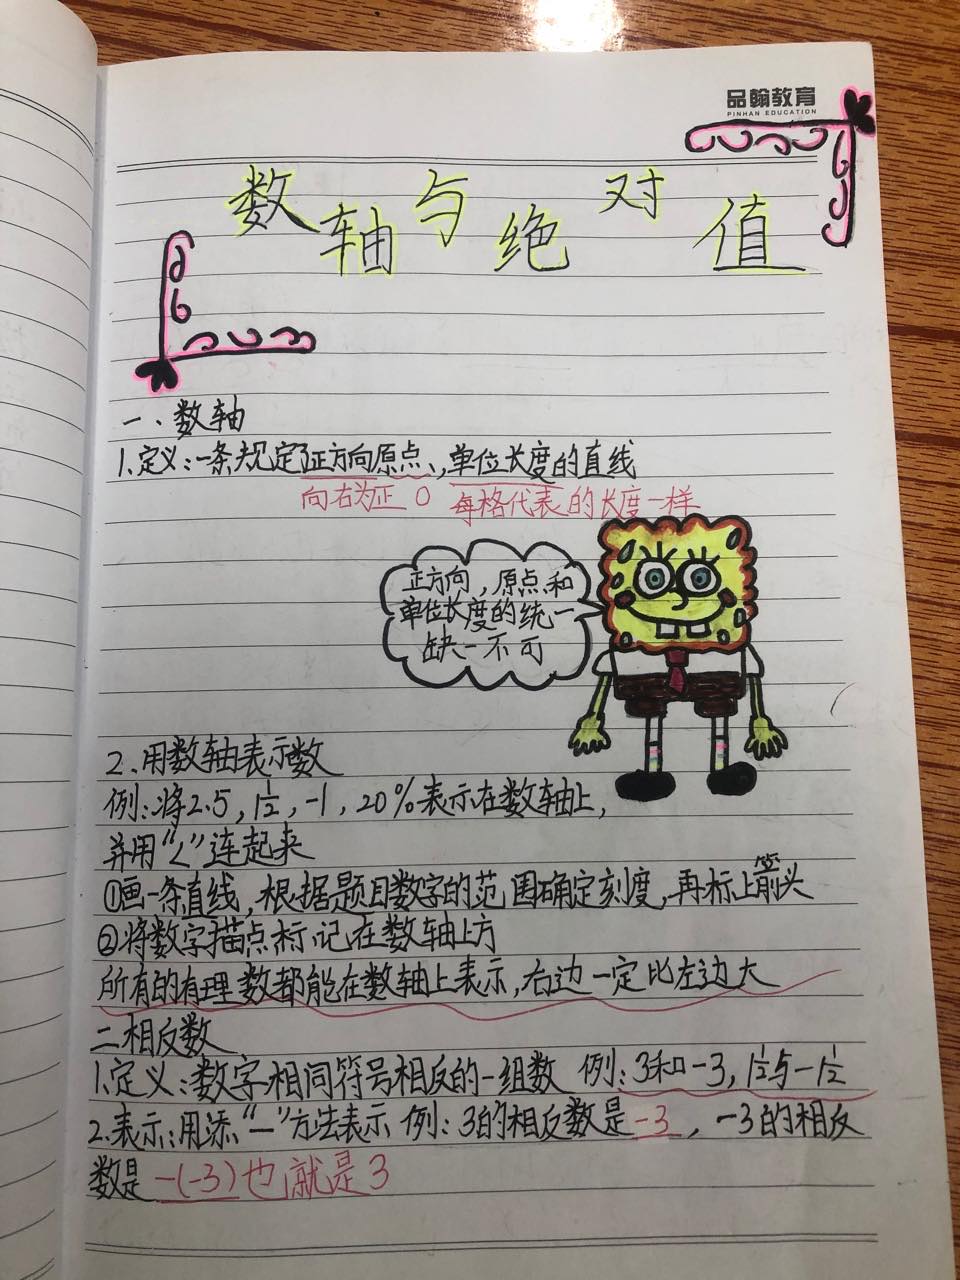 品翰教育
PINHAN EDUCATION
数轴与绝对值
一、数轴
1、定义:一条规定了正方向原点、,单位长度的直线
向右为正 0 每格代表的长度一样
正方向,原点和
单位长度的统一
缺一不可
2、用数轴表示数
例:将2.5,1½,-1,20%表示在数轴上,
并用“<”连起来
①画一条直线,根据题目数字的范围确定刻度,再标上箭头
②将数字描点标记在数轴上方
所有的有理数都能在数轴上表示,右边一定比左边大
二相反数
1、定义:数字相同符号相反的一组数 例:3和-3,1½与-1½
2、表示:用添“—”方法表示 例:3的相反数是-3,-3的相反
数是-(-3)也就是3